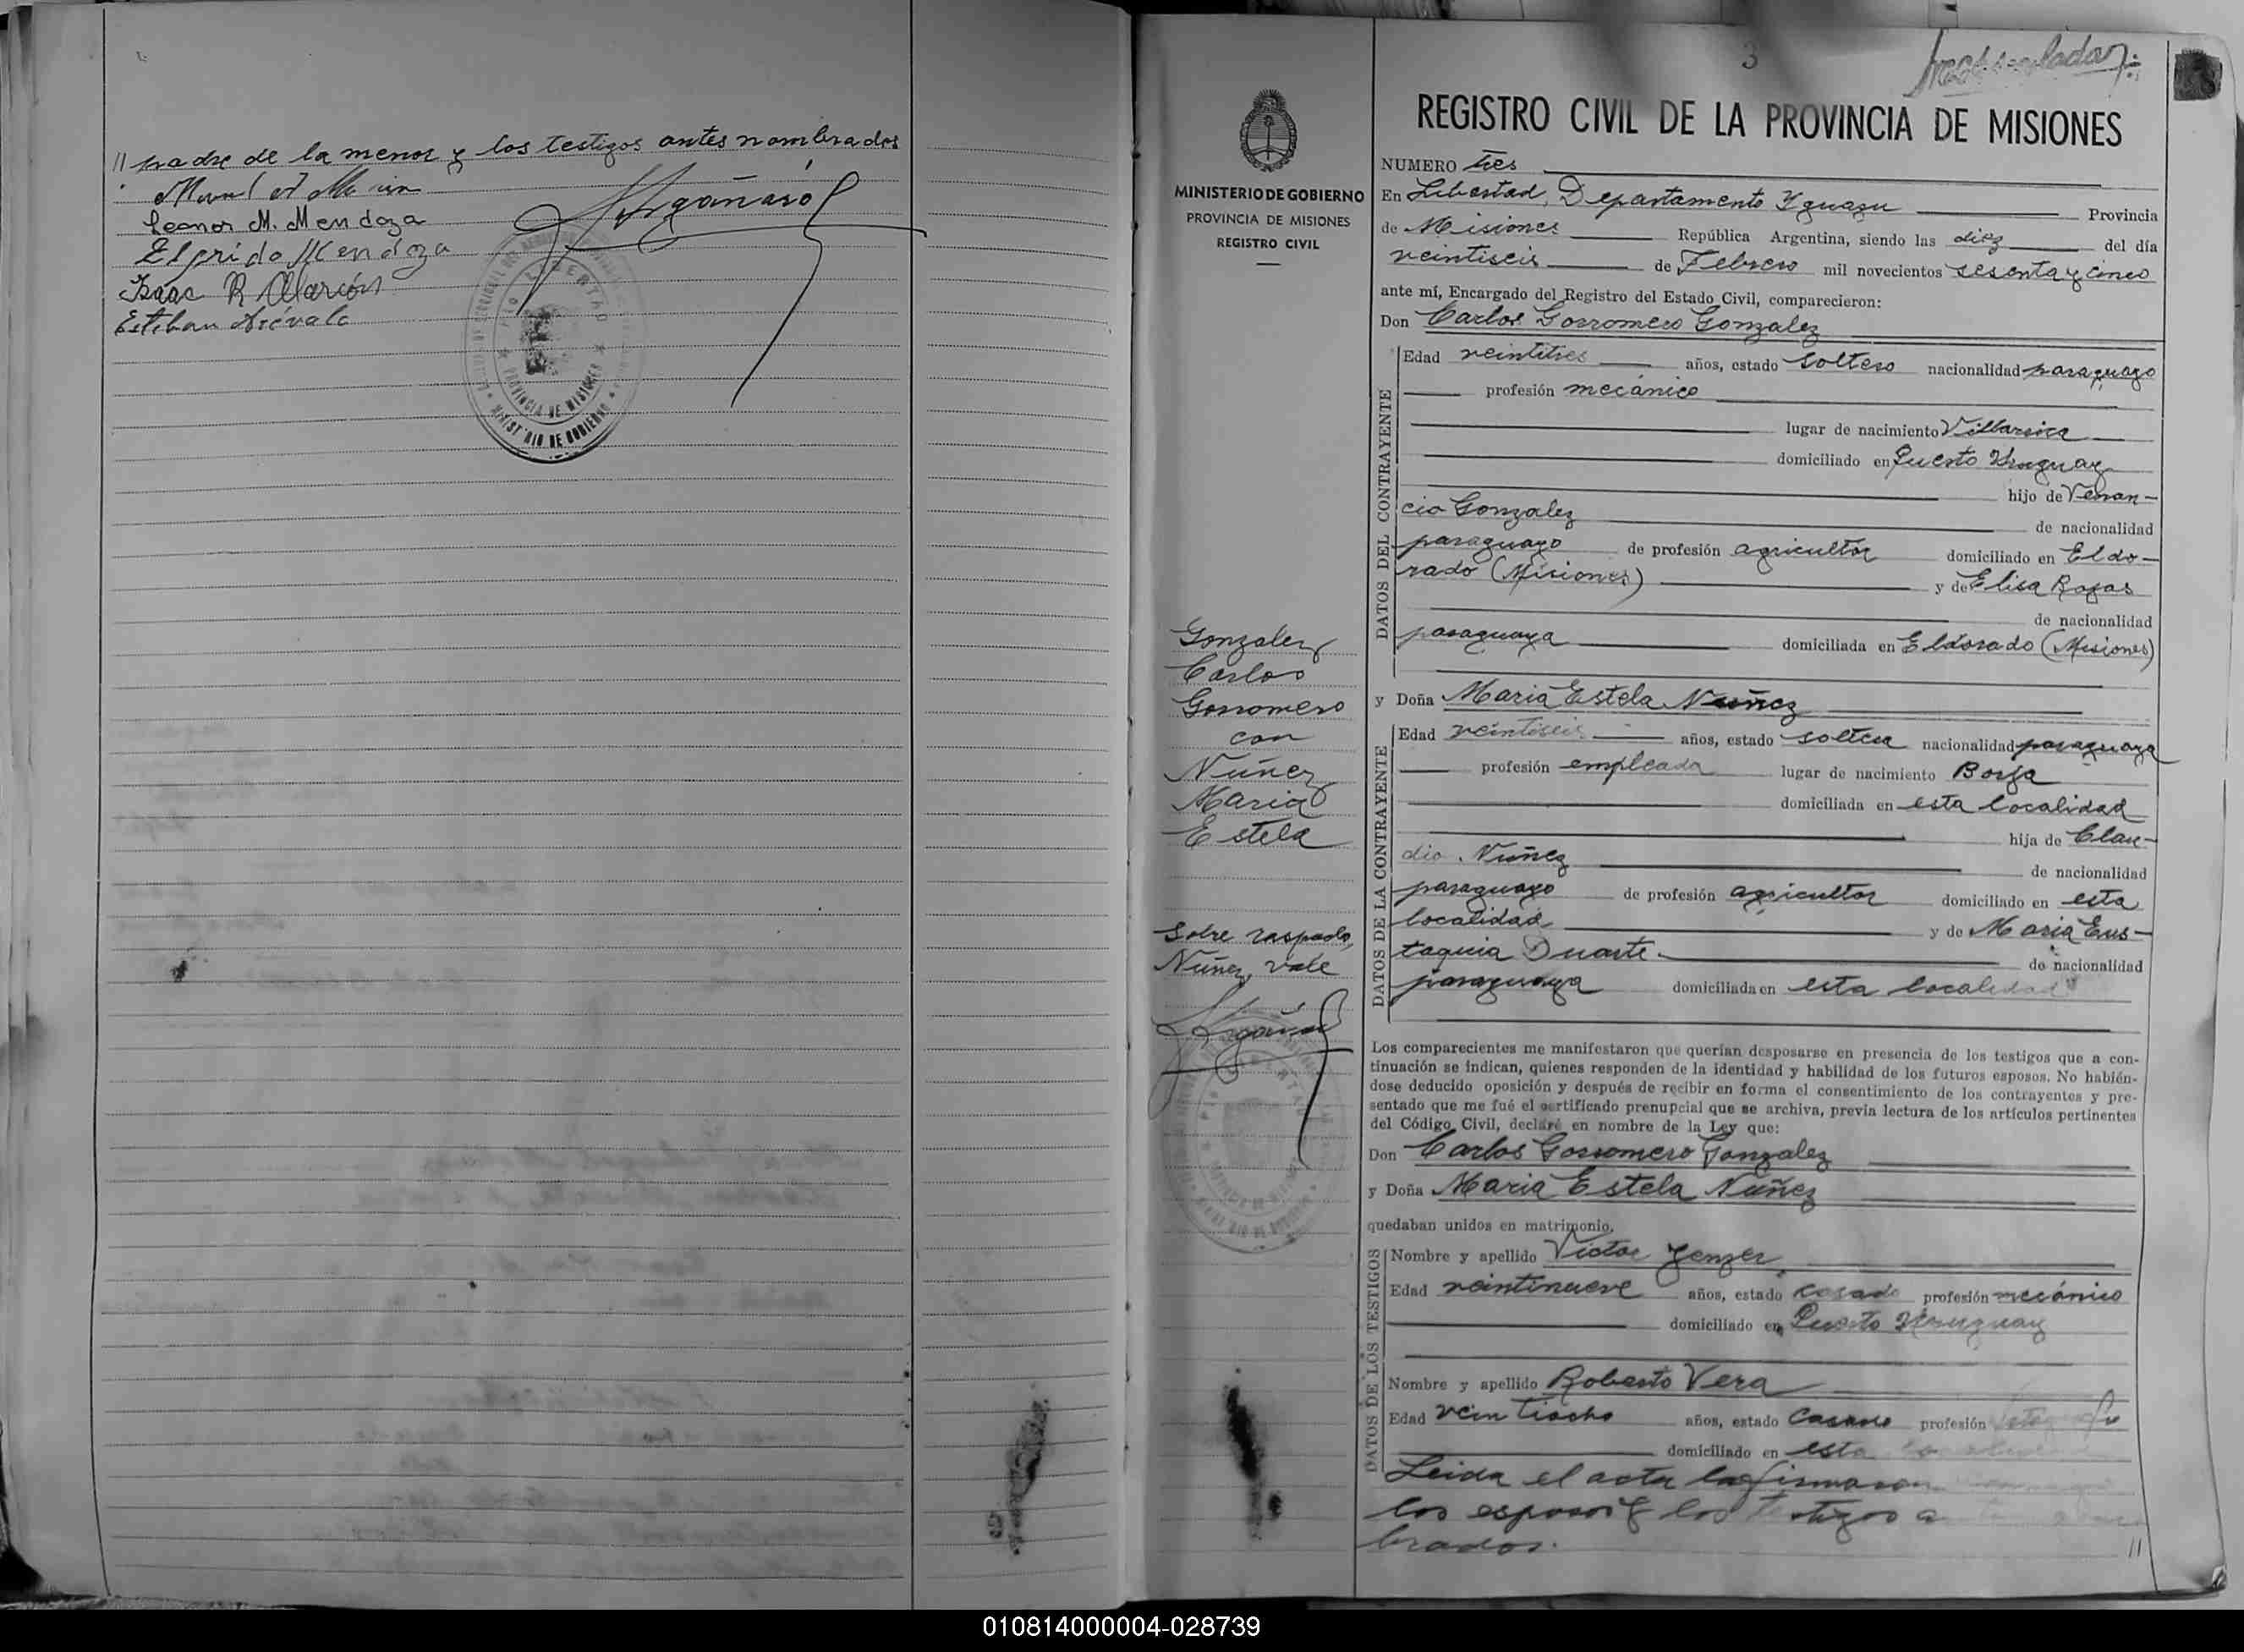 // padre de la menor y los testigos antes nombrados
Leonor M. Mendoza
Elfrido Mendoza
Isaac R Alarcón
Esteban Arévalo
LIBERTAD
PROVINCIA DE MISIONES
MINISTERIO DE GOBIERNO
3
REGISTRO CIVIL DE LA PROVINCIA DE MISIONES
MINISTERIO DE GOBIERNO
PROVINCIA DE MISIONES
REGISTRO CIVIL
Gonzalez
Carlos
Gorromero
con
Núñez
Maria
Estela
Sobre raspado,
Núñez, vale
NUMERO tres
En Libertad, Departamento Yguazu Provincia
de Misiones República Argentina, siendo las diez del día
veintiseis de Febrero mil novecientos sesenta y cinco
ante mí, Encargado del Registro del Estado Civil, comparecieron:
Don Carlos Gorromero Gonzalez
DATOS DEL CONTRAYENTE
Edad veintitres años, estado soltero nacionalidad paraguayo
profesión mecánico
lugar de nacimiento Villarrica
domiciliado en Puerto Uruguay
hijo de Venan-
cio Gonzalez
de nacionalidad
paraguayo de profesión agricultor domiciliado en Eldo-
rado (Misiones) y de Elisa Rojas
de nacionalidad
paraguaya domiciliada en Eldorado (Misiones)
y Doña Maria Estela Nuñez
DATOS DE LA CONTRAYENTE
Edad veintiseis años, estado soltera nacionalidad paraguaya
profesión empleada lugar de nacimiento Borja
domiciliada en esta localidad
hija de Clau-
dio Núñez
de nacionalidad
paraguayo de profesión agricultor domiciliado en esta
localidad y de Maria Eus-
taquia Duarte
de nacionalidad
paraguaya domiciliada en esta localidad
Los comparecientes me manifestaron que querían desposarse en presencia de los testigos que a con-
tinuación se indican, quienes responden de la identidad y habilidad de los futuros esposos. No habién-
dose deducido oposición y después de recibir en forma el consentimiento de los contrayentes y pre-
sentado que me fué el certificado prenupcial que se archiva, previa lectura de los artículos pertinentes
del Código Civil, declaré en nombre de la Ley que:
Don Carlos Gorromero Gonzalez
y Doña Maria Estela Núñez
quedaban unidos en matrimonio.
DATOS DE LOS TESTIGOS
Nombre y apellido Victor
Edad veintinueve años, estado casado profesión mecánico
domiciliado en Puerto Uruguay
Nombre y apellido Roberto Vera
Edad veintiocho años, estado casado profesión
domiciliado en esta
Leida el acta la firmaron
los esposos y los testigos
brados. //
010814000004-028739